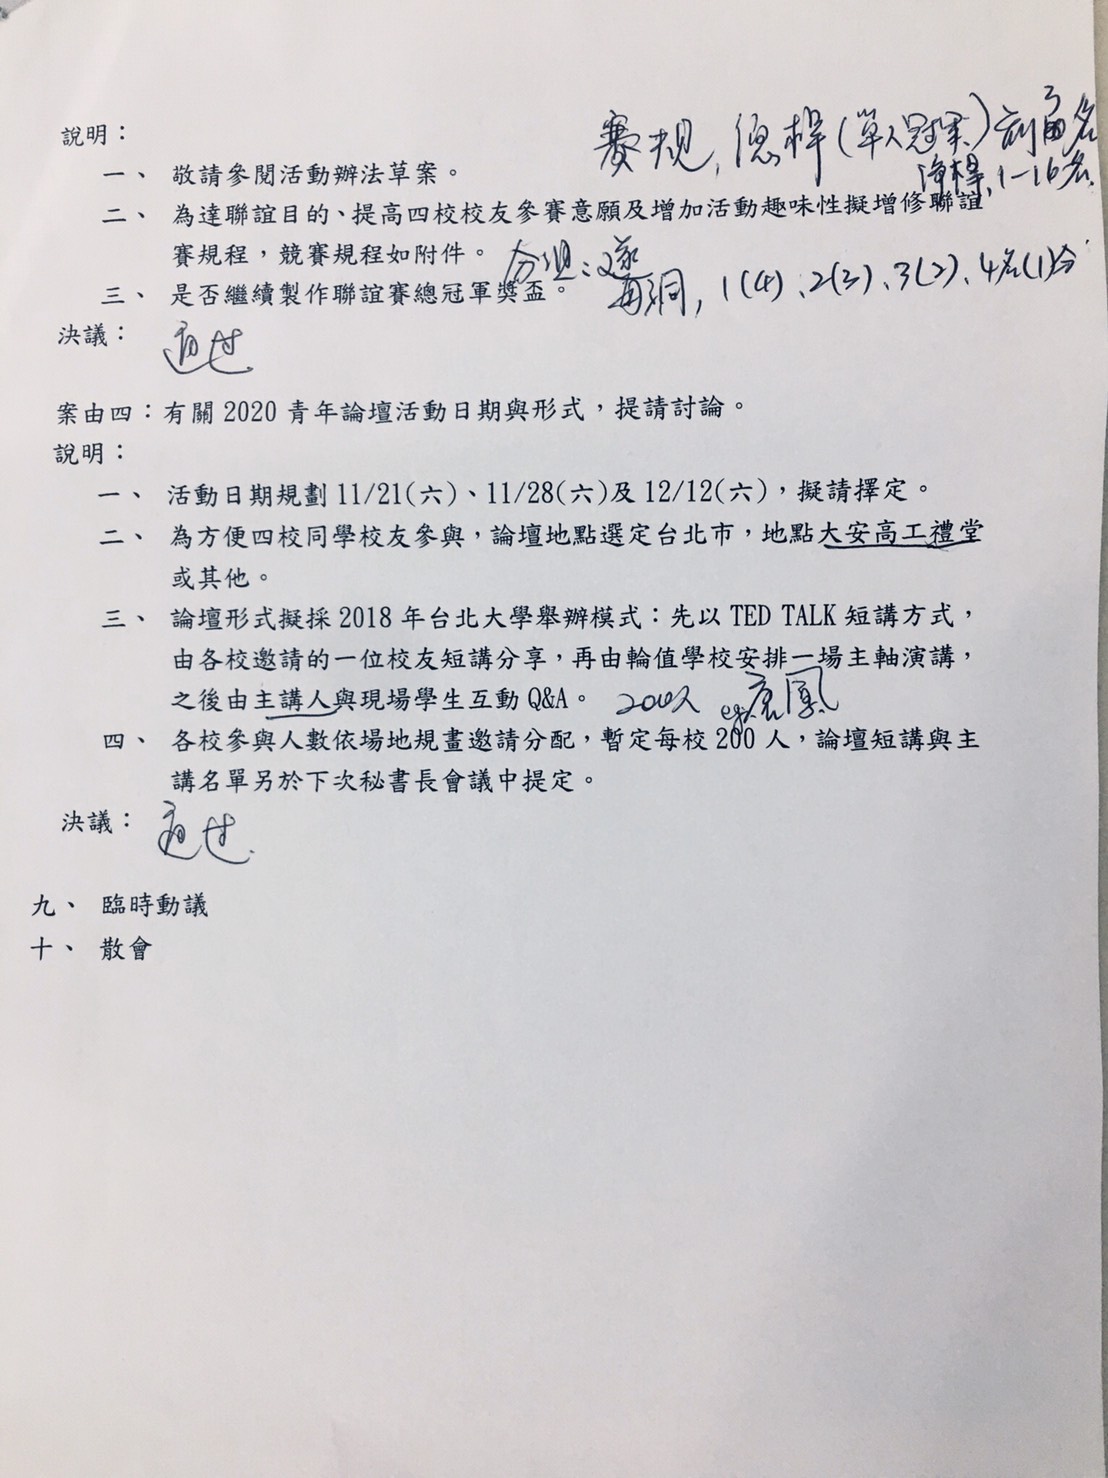 說明：
賽規，總桿(單人冠軍)前
淨桿，1-16名
一、 敬請參閱活動辦法草案。
二、 為達聯誼目的、提高四校校友參賽意願及增加活動趣味性擬增修聯誼
賽規程，競賽規程如附件。 分組：逐
三、 是否繼續製作聯誼賽總冠軍獎盃。 每洞，1(4)、2(3)、3(2)、4名(1)分
決議： 通過
案由四：有關 2020 青年論壇活動日期與形式，提請討論。
說明：
一、 活動日期規劃 11/21(六)、11/28(六)及 12/12(六)，擬請擇定。
二、 為方便四校同學校友參與，論壇地點選定台北市，地點大安高工禮堂
或其他。
三、 論壇形式擬採 2018 年台北大學舉辦模式：先以 TED TALK 短講方式，
由各校邀請的一位校友短講分享，再由輪值學校安排一場主軸演講，
之後由主講人與現場學生互動 Q&A。 200人 eg.唐鳳
四、 各校參與人數依場地規畫邀請分配，暫定每校 200 人，論壇短講與主
講名單另於下次秘書長會議中提定。
決議： 通過
九、 臨時動議
十、 散會